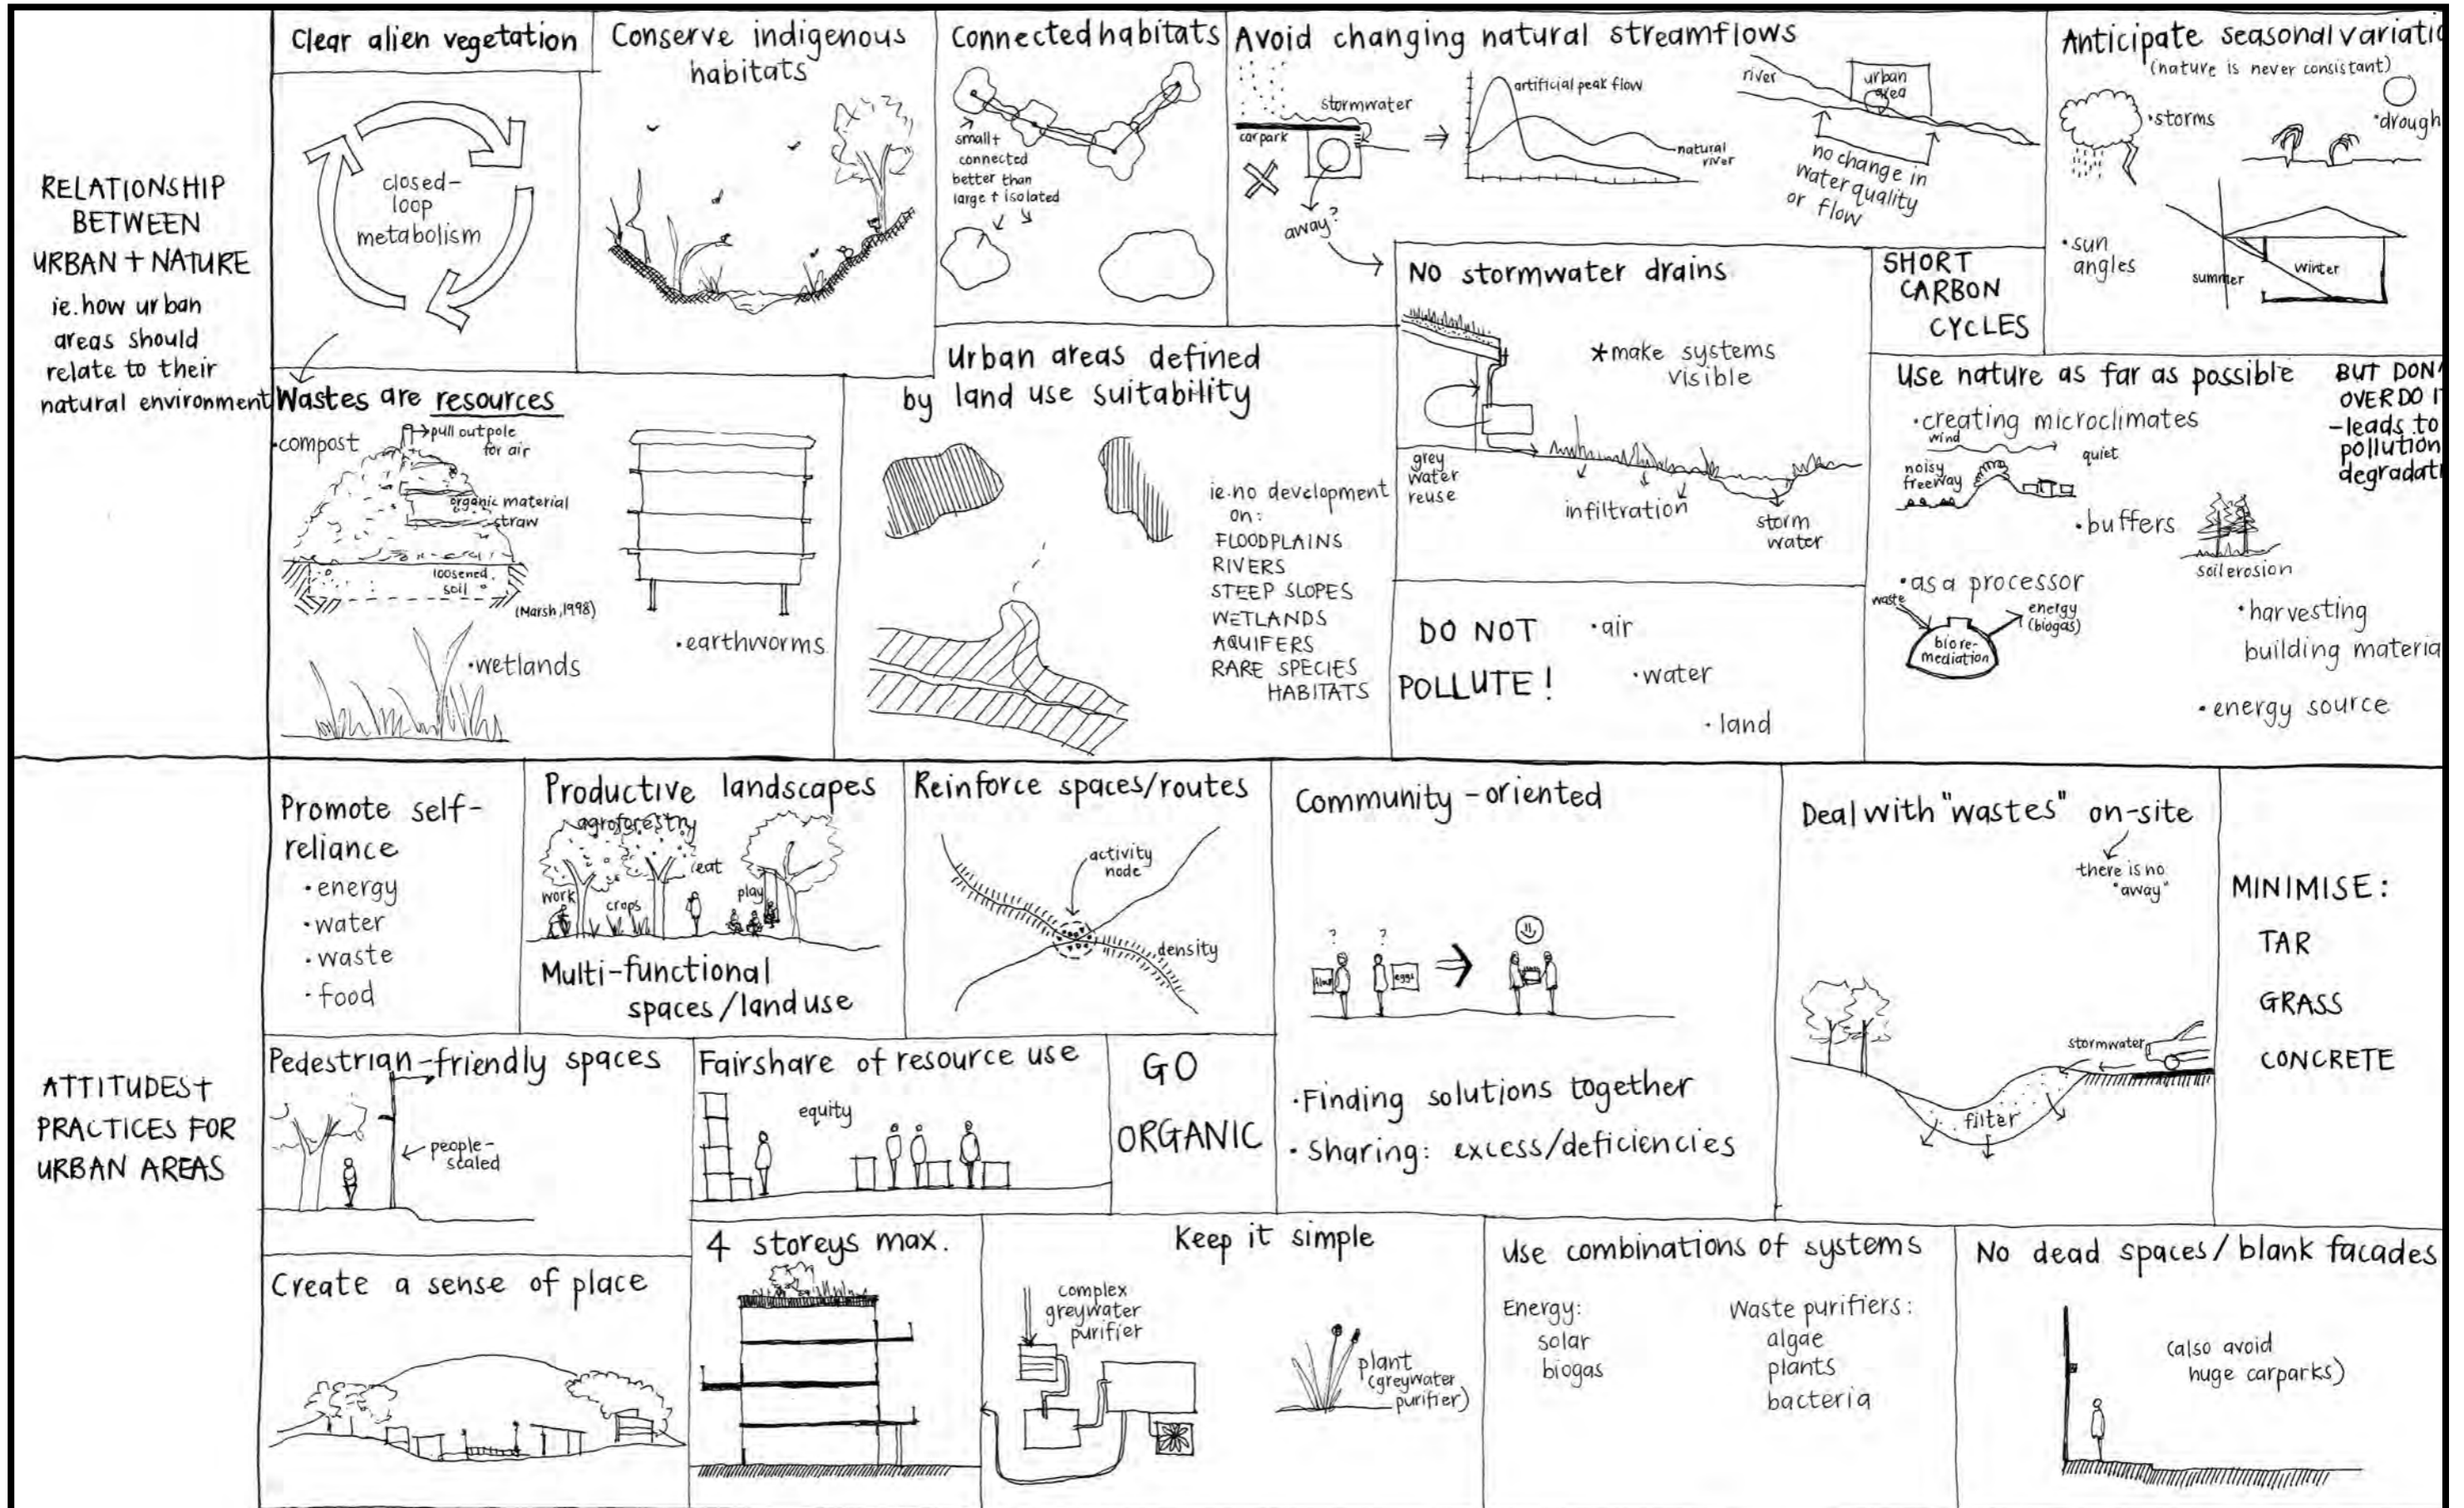 RELATIONSHIP
BETWEEN
URBAN + NATURE
ie. how urban
areas should
relate to their
natural environment
Clear alien vegetation
closed-
loop
metabolism
Conserve indigenous
habitats
Connected habitats
small +
connected
better than
large + isolated
Avoid changing natural streamflows
stormwater
carpark
away?
artificial peak flow
natural
river
river
urban
area
no change in
water quality
or flow
Anticipate seasonal variatio
(nature is never consistant)
•storms
•drough
•sun
angles
summer
winter
Wastes are resources
•compost
pull out pole
for air
organic material
straw
loosened
soil
(Marsh, 1998)
•earthworms
•wetlands
Urban areas defined
by land use suitability
ie. no development
on:
FLOODPLAINS
RIVERS
STEEP SLOPES
WETLANDS
AQUIFERS
RARE SPECIES
HABITATS
No stormwater drains
*make systems
visible
grey
water
reuse
infiltration
storm
water
SHORT
CARBON
CYCLES
DO NOT
POLLUTE!
•air
•water
•land
Use nature as far as possible
BUT DON'
OVERDO I
-leads to
pollution
degradati
•creating microclimates
wind
quiet
noisy
freeway
•buffers
soil erosion
•as a processor
waste
energy
(biogas)
biore-
mediation
•harvesting
building materia
•energy source
ATTITUDES +
PRACTICES FOR
URBAN AREAS
Promote self-
reliance
•energy
•water
•waste
•food
Productive landscapes
agroforestry
work
crops
eat
play
Multi-functional
spaces/land use
Reinforce spaces/routes
activity
node
density
Community-oriented
?
?
eggs
•Finding solutions together
•Sharing: excess/deficiencies
Deal with "wastes" on-site
there is no
"away"
stormwater
filter
MINIMISE:
TAR
GRASS
CONCRETE
Pedestrian-friendly spaces
people-
scaled
Fairshare of resource use
equity
GO
ORGANIC
Create a sense of place
4 storeys max.
Keep it simple
complex
greywater
purifier
plant
(greywater
purifier)
Use combinations of systems
Energy:
solar
biogas
Waste purifiers:
algae
plants
bacteria
No dead spaces/blank facades
(also avoid
huge carparks)